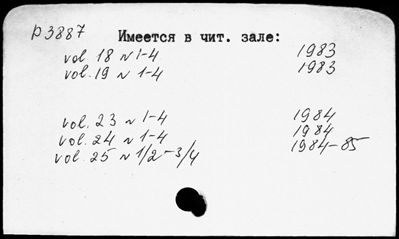 р3887 Имеется в чит. зале:
vol. 18 N 1-4 1983
vol. 19 N 1-4 1983
vol. 23 N 1-4 1984
vol. 24 N 1-4 1984
vol. 25 N 1/2-3/4 1984-85